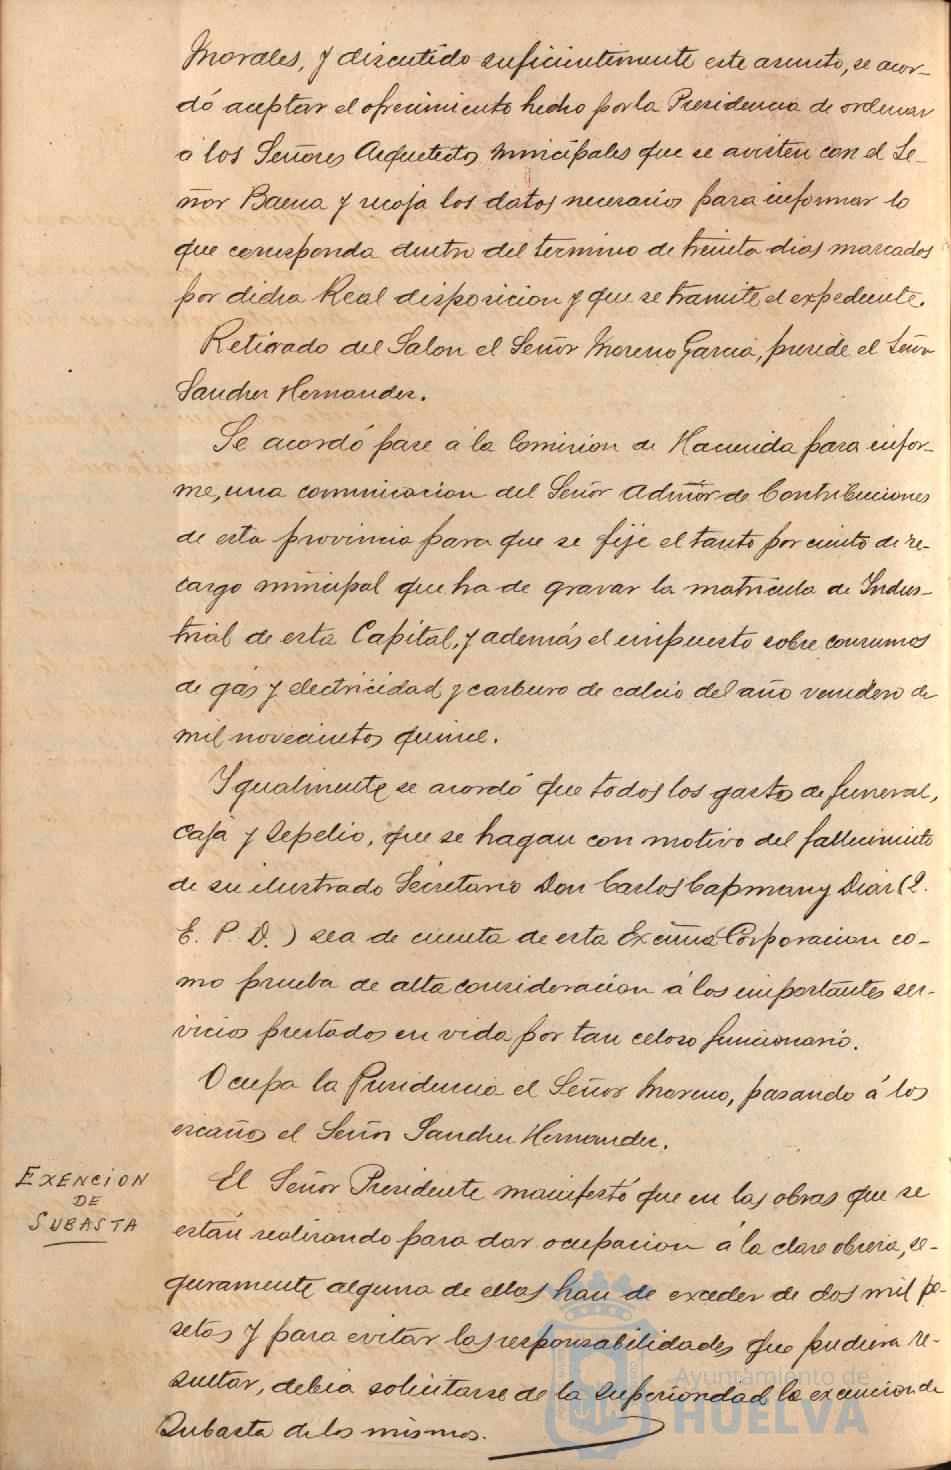 Morales, y discutido suficientemente este asunto, se acor-
dó aceptar el ofrecimiento hecho por la Presidencia de ordenar
á los Señores Arquetectos municipales que se avisten con el Se-
ñor Baena y recoja los datos necesarios para informar lo
que corresponda dentro del termino de treinta dias marcados
por dicha Real disposicion y que se tramite el expediente.
Retirado del Salon el Señor Moreno Garcia, preside el Señor
Sanchez Hernandez.
Se acordó pase á la Comision de Hacienda para infor-
me, una comunicacion del Señor Admõr de Contribuciones
de esta provincia para que se fije el tanto por ciento de re-
cargo municipal que ha de gravar la matricula de Indus-
trial de esta Capital, y además el impuesto sobre consumos
de gás y electricidad y carburo de calcio del año venidero de
mil novecientos quince.
Ygualmente se acordó que todos los gastos de funeral,
caja y sepelio, que se hagan con motivo del fallecimiento
de su ilustrado Secretario Don Carlos Capmany Diaz (Q.
E. P. D.) sea de cuenta de esta Excma Corporacion co-
mo prueba de alta consideracion á los importantes ser-
vicios prestados en vida por tan celoso funcionario.
Ocupa la Presidencia el Señor Moreno, pasando á los
escaños el Señor Sanchez Hernandez.
EXENCION
DE
SUBASTA
El Señor Presidente manifestó que en las obras que se
están realizando para dar ocupacion á la clase obrera, se-
guramente alguna de ellas han de exceder de dos mil pe-
setas y para evitar las responsabilidades que pudiera re-
sultar, debia solicitarse de la Superioridad la exencion de
Subasta de los mismos.
Ayuntamiento de
HUELVA